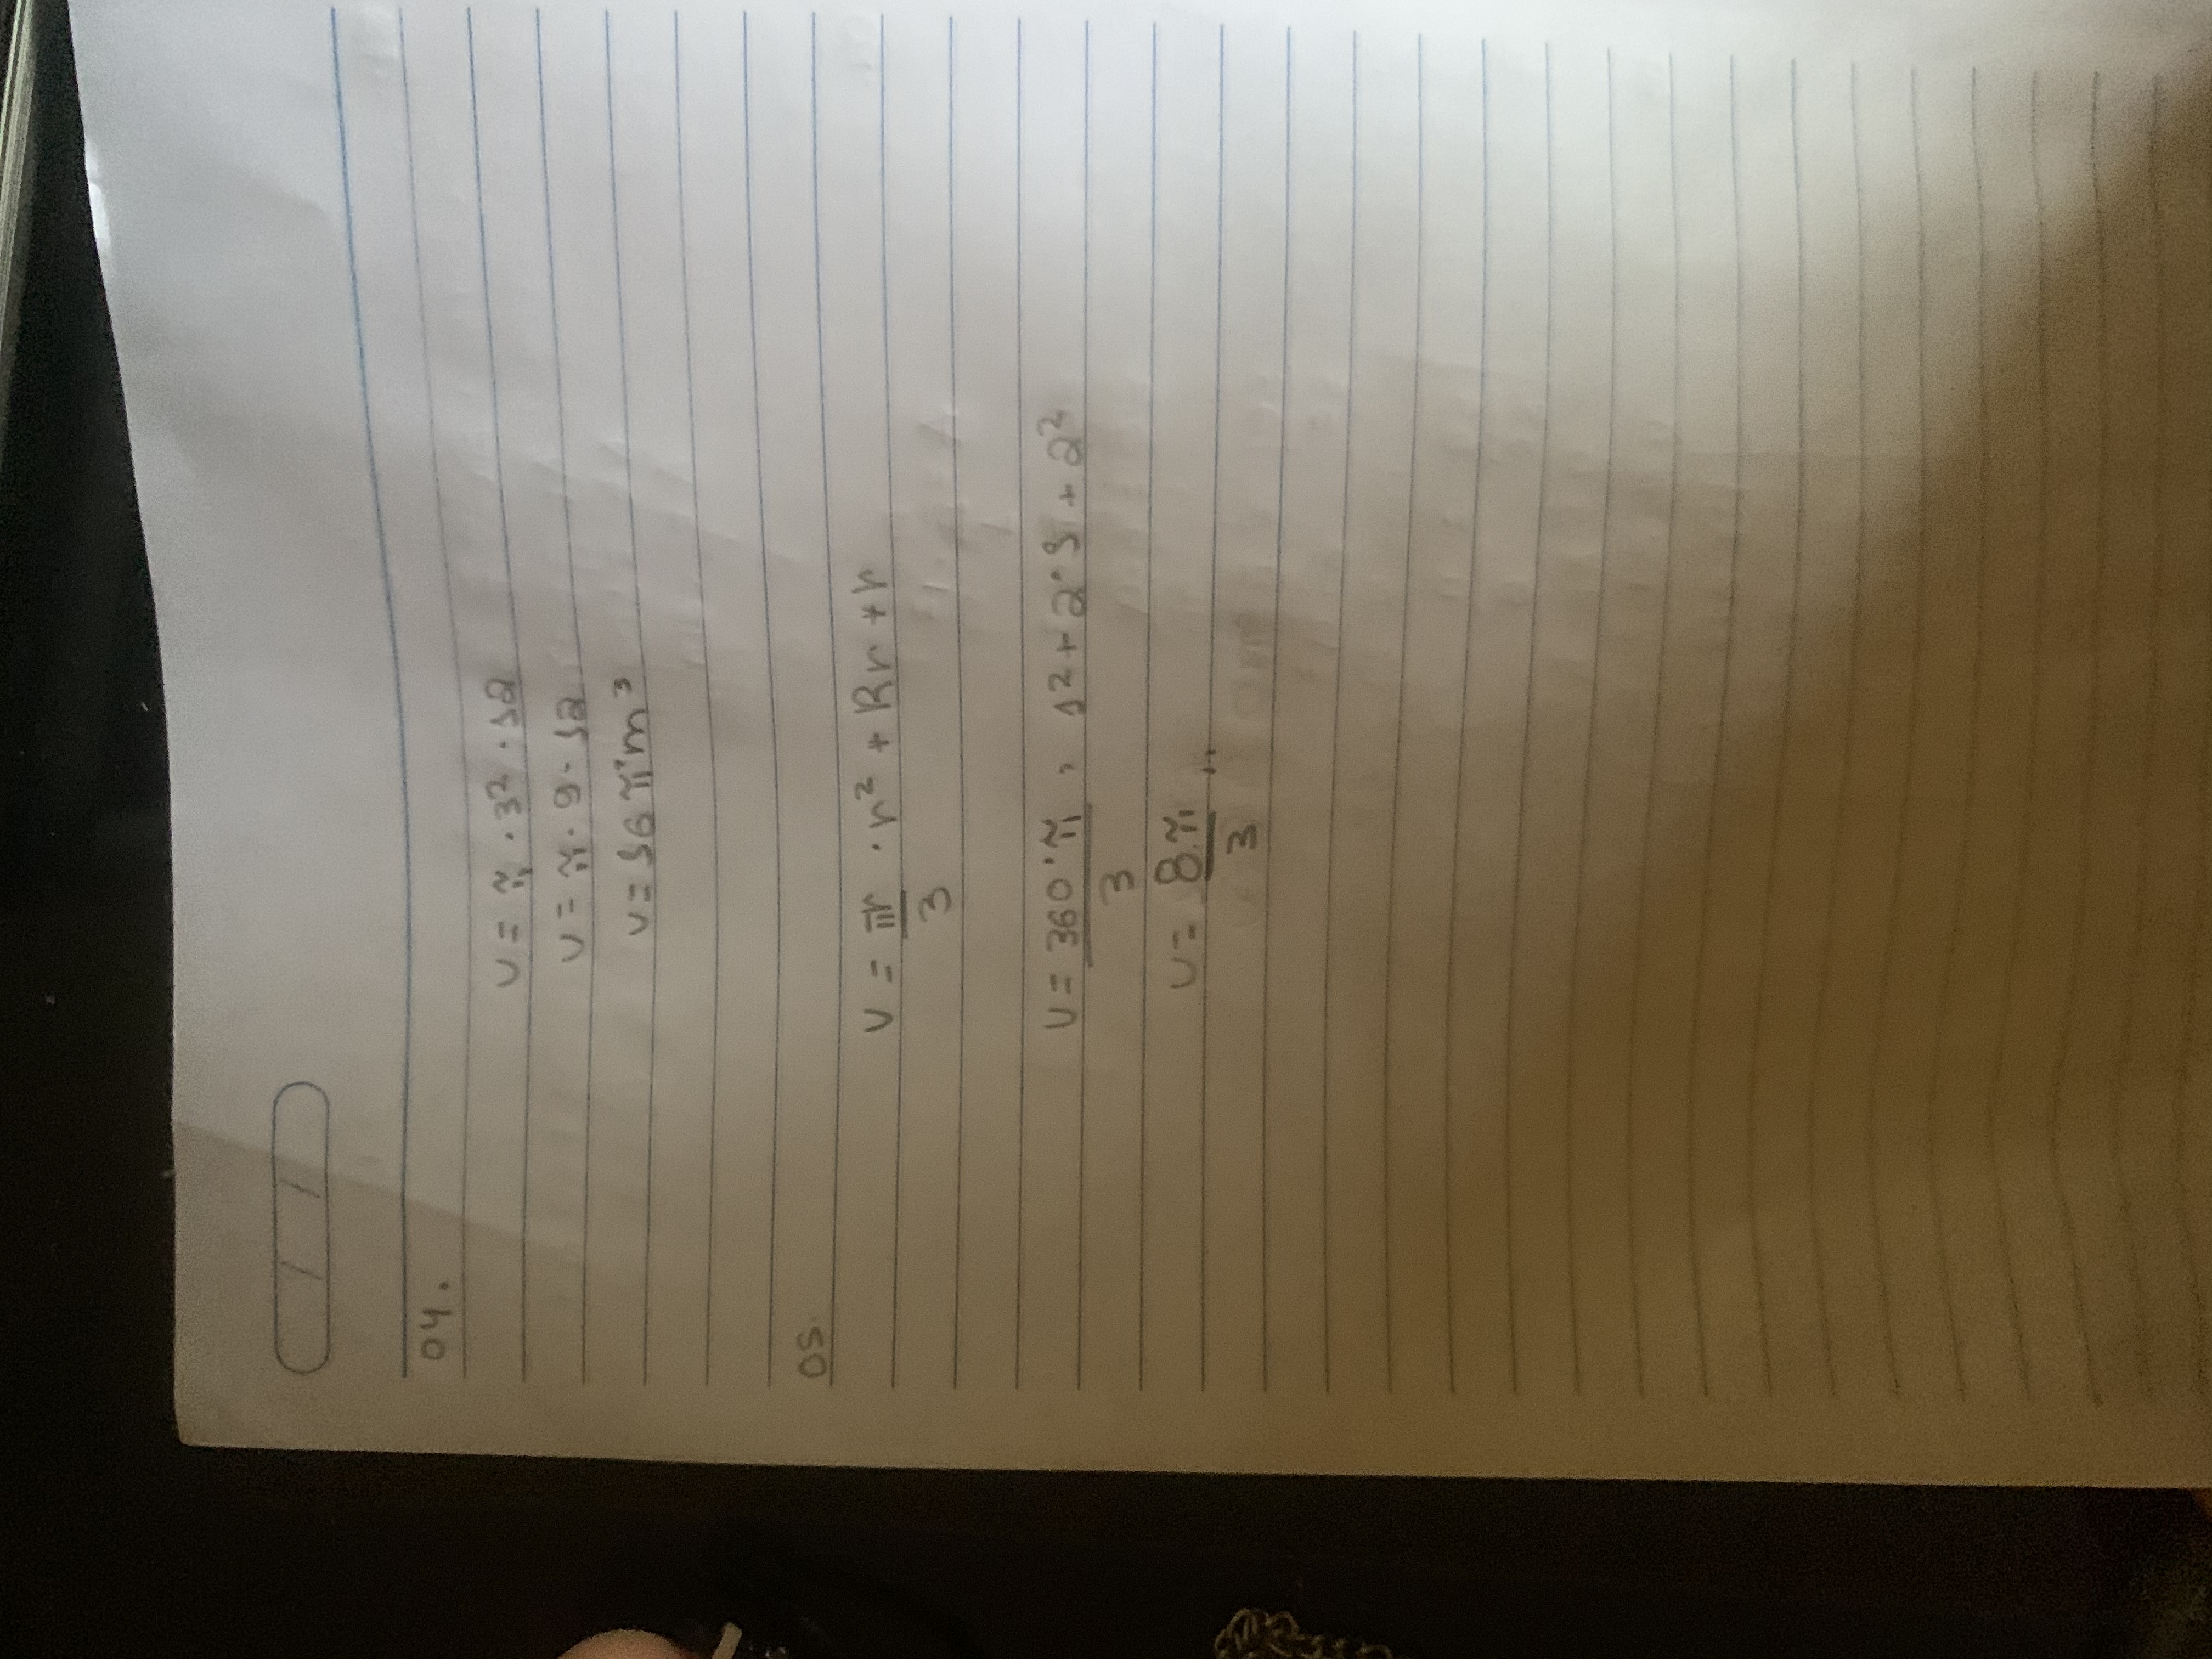 04.
V = π · 3² · 12
V = π · 9 · 12
V = 36 π m³
05.
V = πr/3 · r² + Rr + r
V = 360·π/3 · 1² + 2·1 + 2²
V = 8π/3 ..